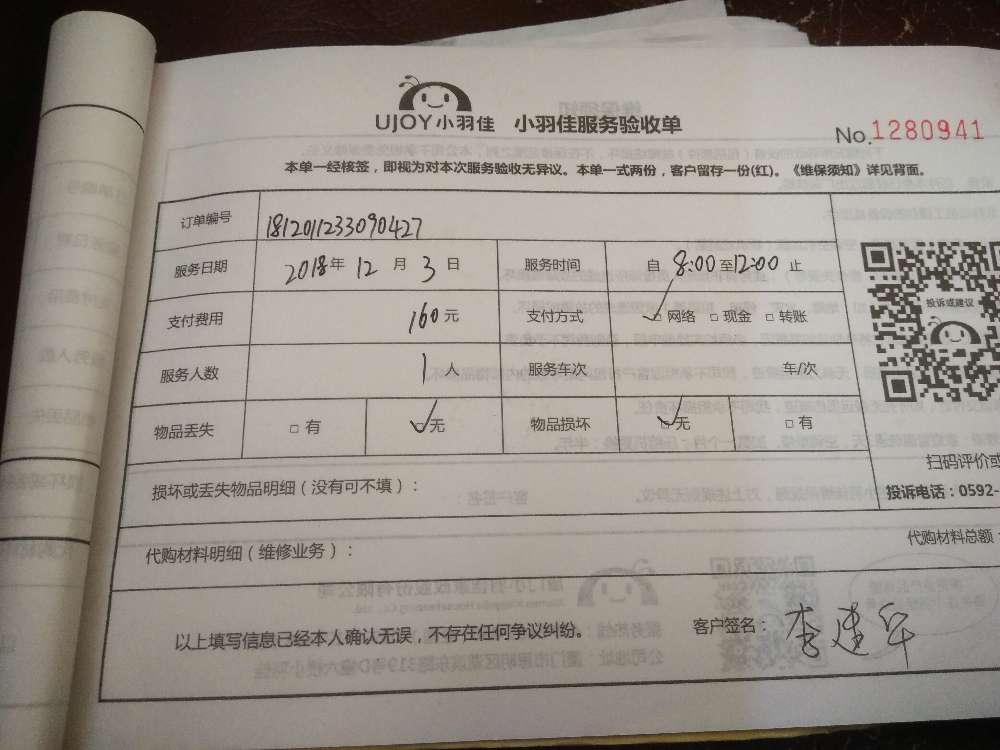 UJOY小羽佳 小羽佳服务验收单
No.1280941
本单一经核签，即视为对本次服务验收无异议。本单一式两份，客户留存一份(红)。《维保须知》详见背面。
订单编号 181201123309 0427
服务日期 2018年 12 月 3 日 服务时间 自 8:00 至 12:00 止
投诉或建议
支付费用 160元 支付方式 ☑网络 □现金 □转账
服务人数 1人 服务车次 车/次
物品丢失 □有 ☑无 物品损坏 ☑无 □有
扫码评价或
损坏或丢失物品明细（没有可不填）：
投诉电话：0592-
代购材料明细（维修业务）：
代购材料总额：
以上填写信息已经本人确认无误，不存在任何争议纠纷。 客户签名：李建军